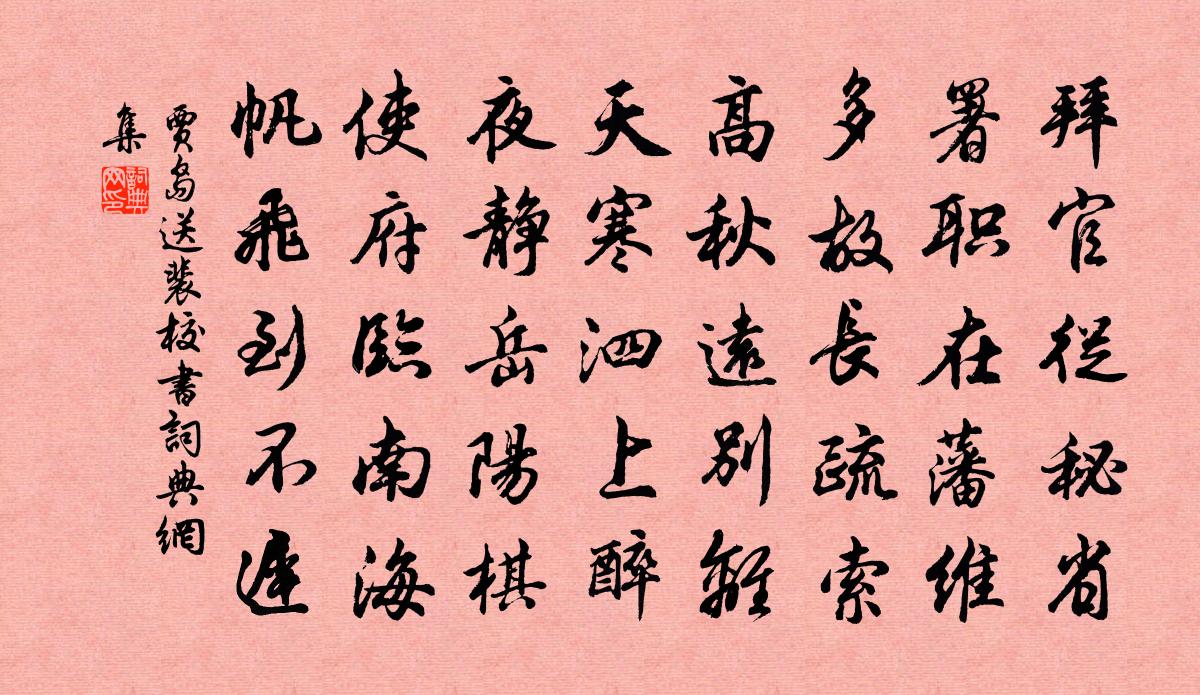 拜官從秘省
署职在藩維
多故長疏索
高秋遠别離
天寒泗上醉
夜静岳陽棋
使府臨南海
帆飛到不遲
賈島送裴校書詞典網
集
詞典网印